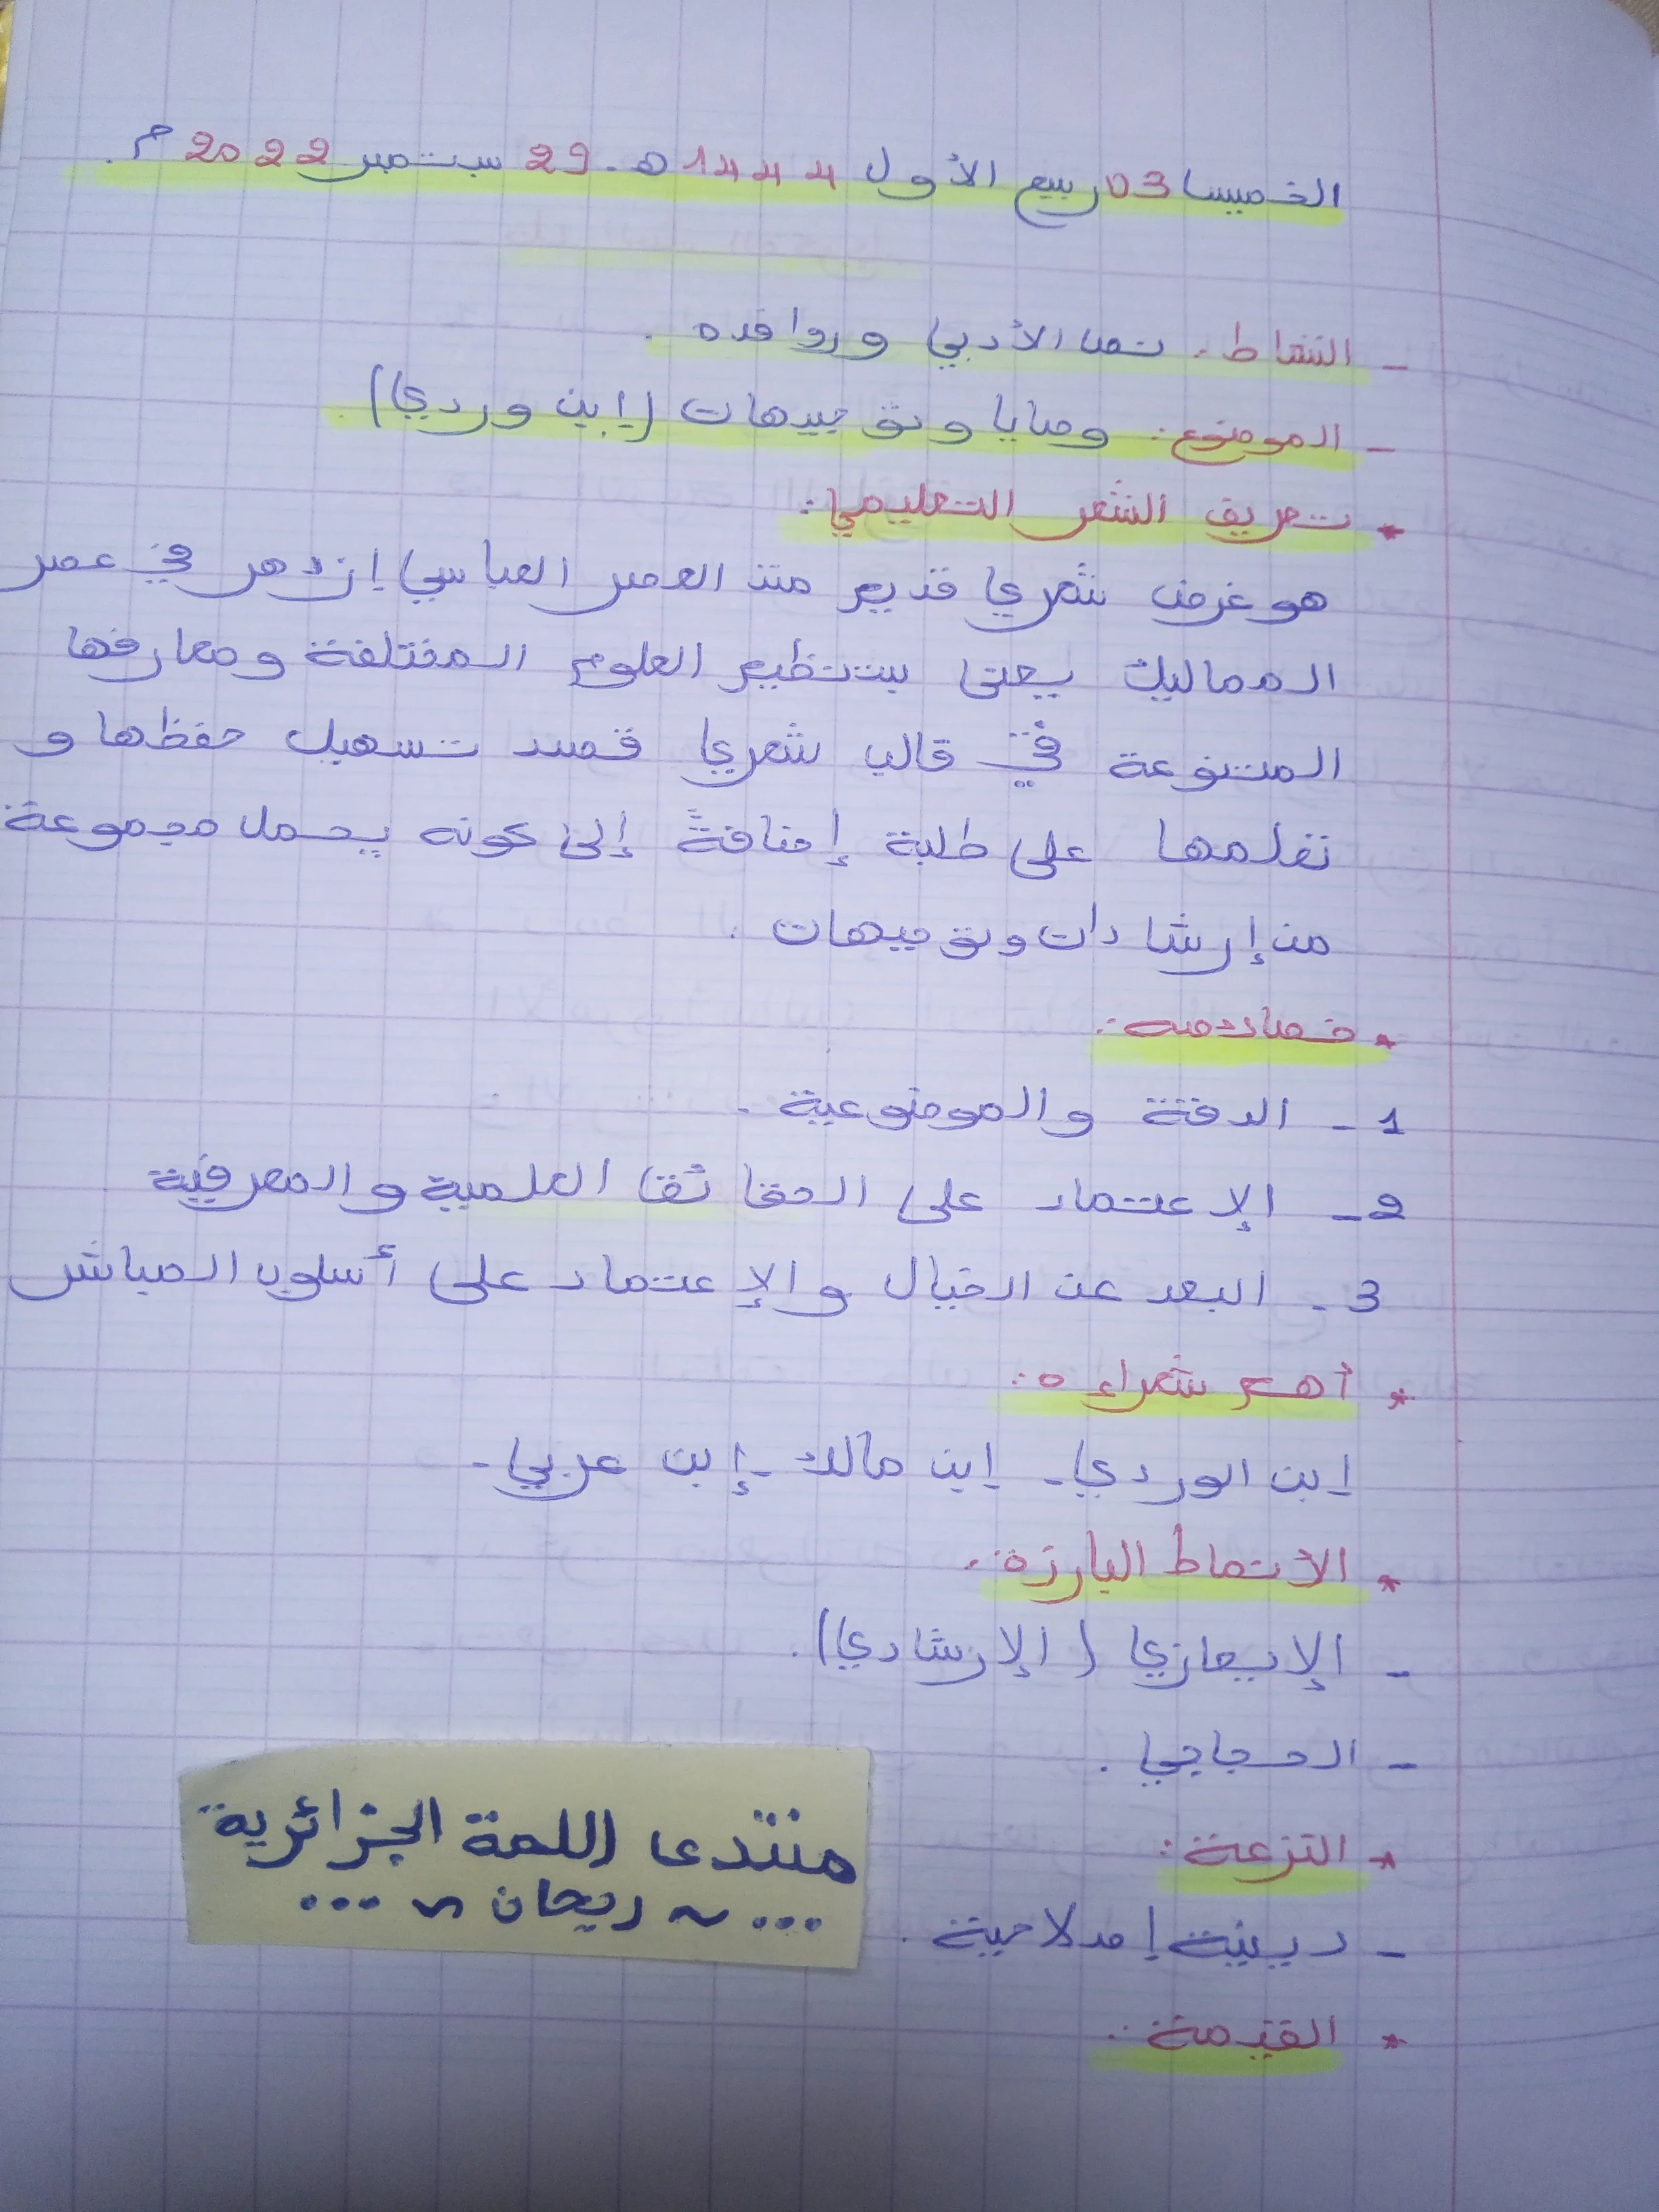 الخميس 03 ربيع الأول 1444 هـ - 29 سبتمبر 2022 م.
- النشاط: نص الأدبي وروافده.
- الموضوع: وصايا وتوجيهات (إبن وردي).
* تعريف الشعر التعليمي:
هو غرض شعري قديم منذ العصر العباسي إزدهر في عصر
المماليك يعنى بتنظيم العلوم المختلفة ومعارفها
المتنوعة في قالب شعري قصد تسهيل حفظها و
تعلمها على طلبة إضافة إلى كونه يحمل مجموعة
من إرشادات وتوجيهات.
* خصائصه:
1- الدقة والموضوعية.
2- الإعتماد على الحقائق العلمية والمعرفية
3- البعد عن الخيال والإعتماد على أسلوب المباشر
* أهم شعراءه:
إبن الوردي - إبن مالك - إبن عربي -
* الأنماط البارزة:
- الإيعازي (الإرشادي).
- الحجاجي.
* النزعة:
- دينية إصلاحية.
* القيمة:
منتدى اللمة الجزائرية
... ~ ريحان ~ ...